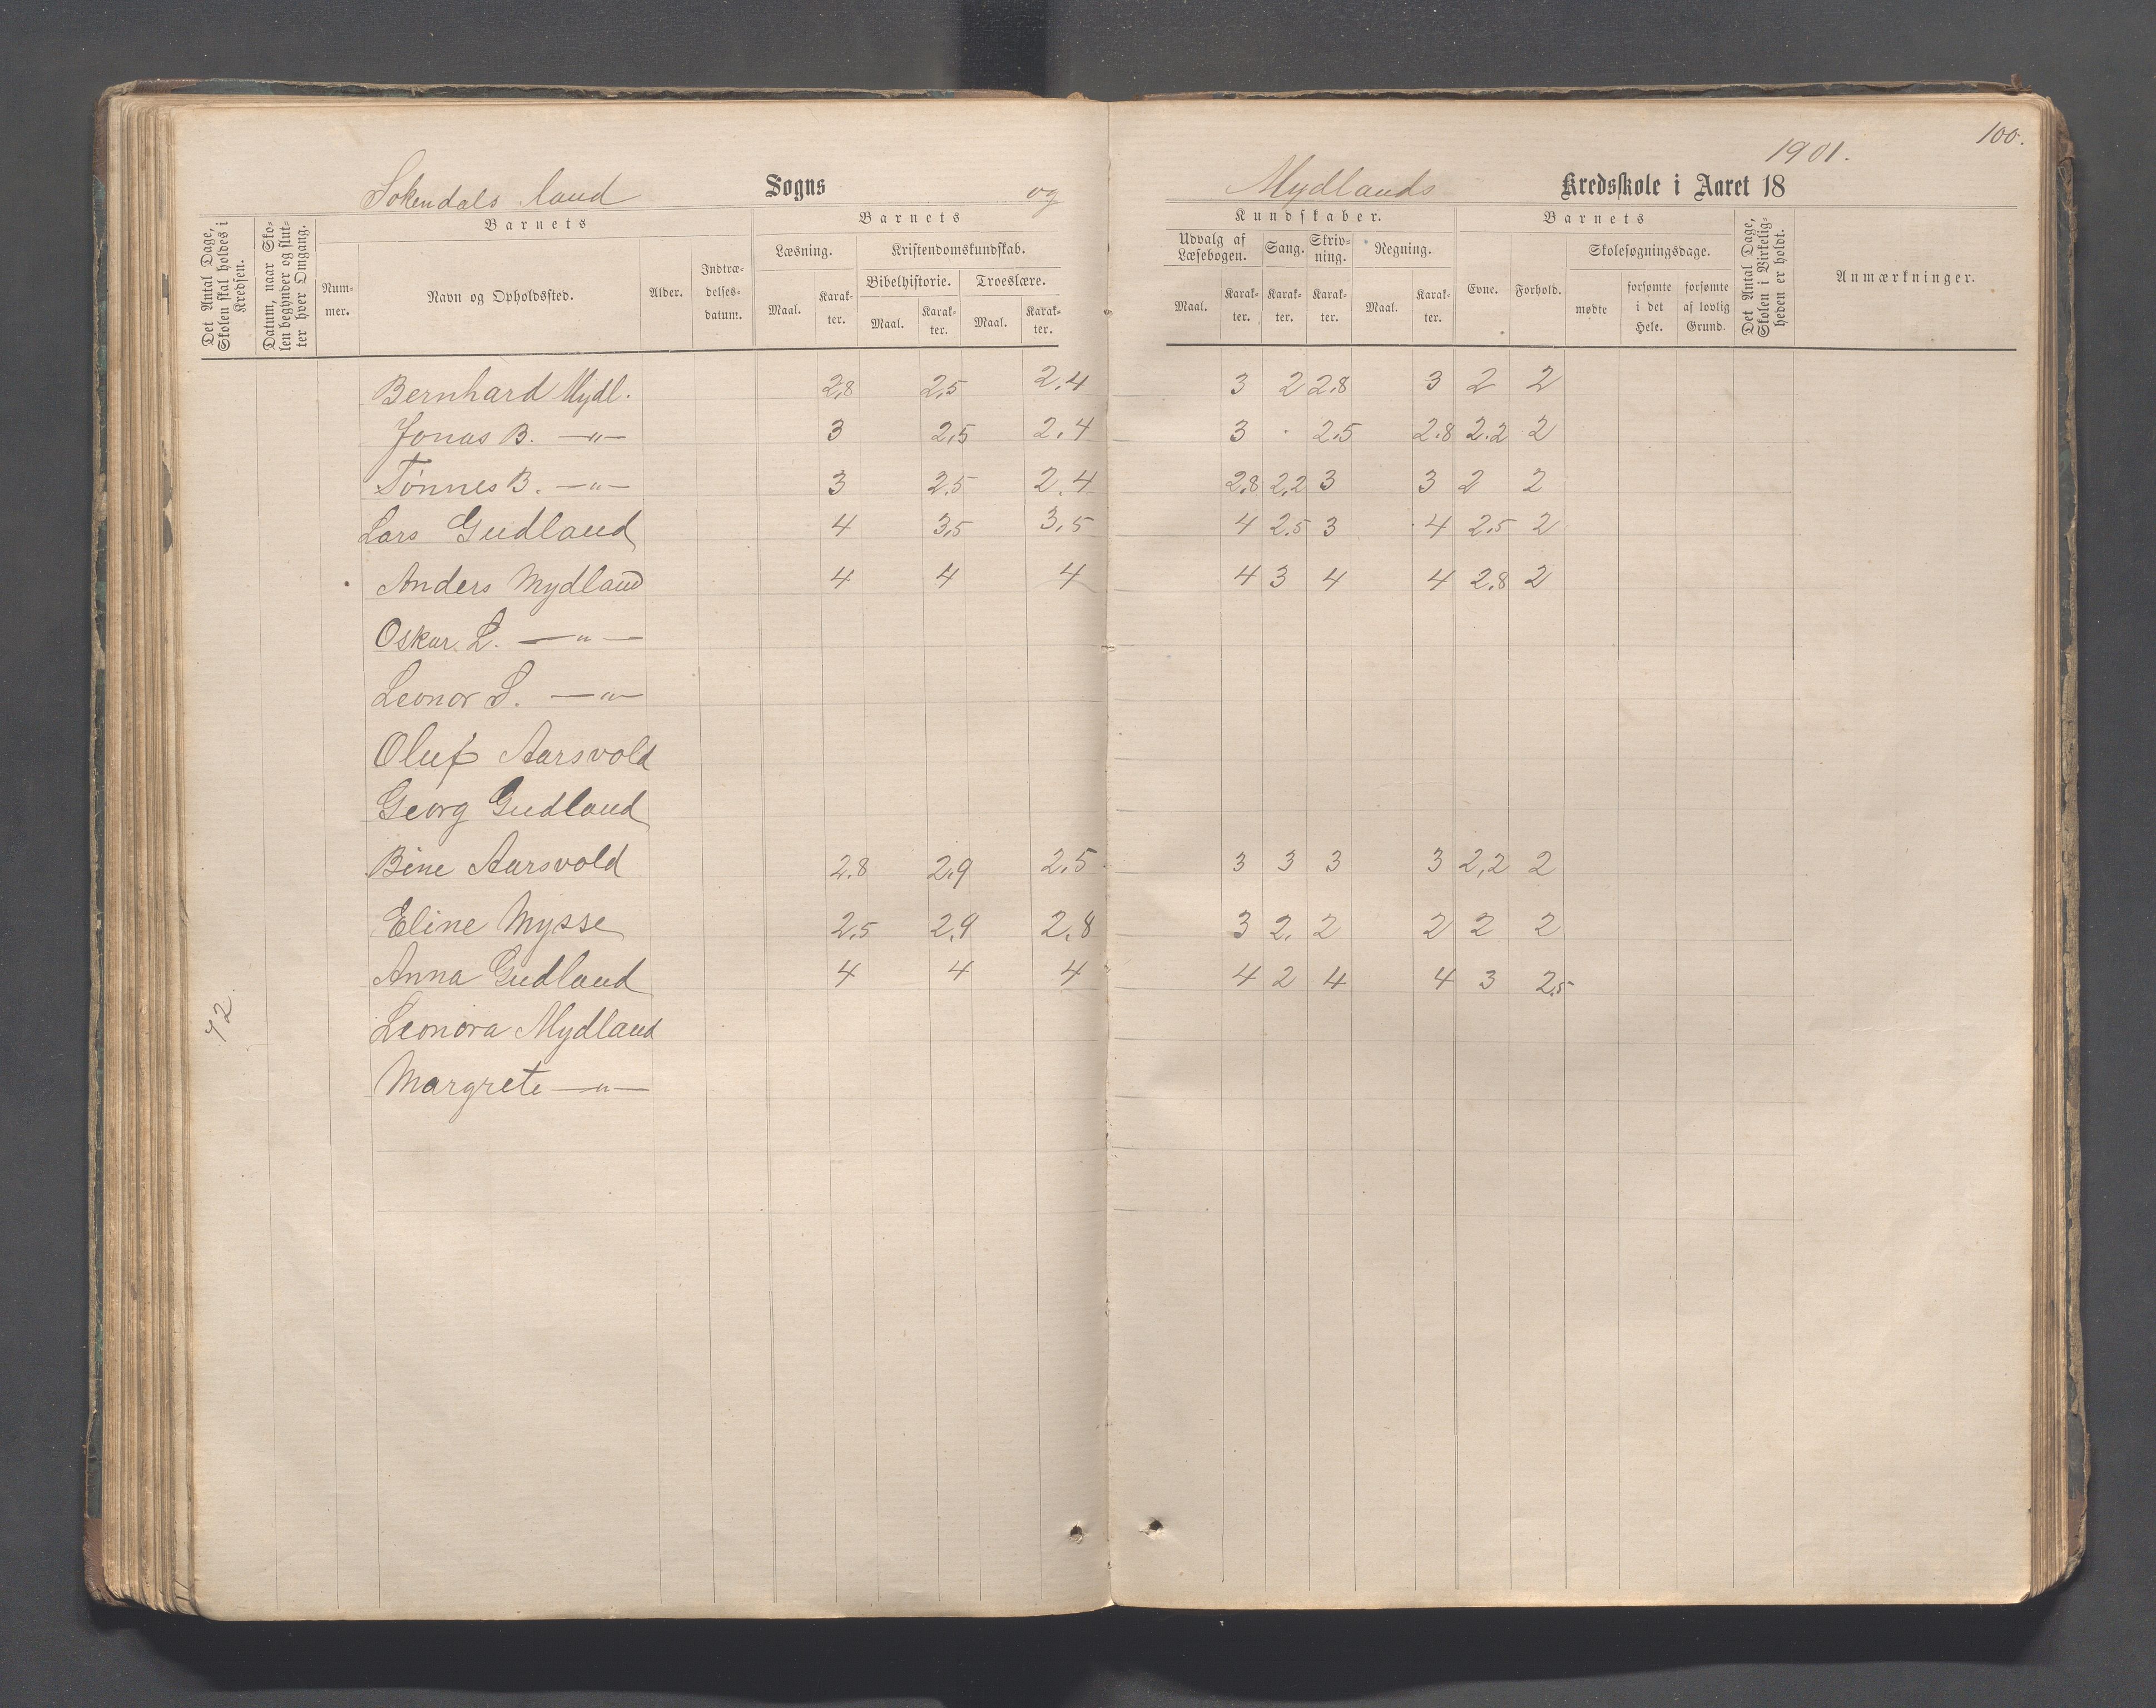 100.
1901.
Sokendals land Sogns og Mydlands Kredsskole i Aaret 18
Det Antal Dage, Skolen skal holdes i Kredsen.
Datum, naar Skolen begynder og slutter hver Omgang.
Barnets
Nummer.
Navn og Opholdssted.
Alder.
Indtrædelsesdatum.
Barnets
Læsning.
Maal.
Karakter.
Kristendomskundskab.
Bibelhistorie.
Maal.
Karakter.
Troeslære.
Maal.
Karakter.
Kundskaber.
Udvalg af Læsebogen.
Maal.
Karakter.
Sang.
Karakter.
Skrivning.
Karakter.
Regning.
Maal.
Karakter.
Barnets
Evne.
Forhold.
Skolesøgningsdage.
mødte
forsømte i det Hele.
forsømte af lovlig Grund.
Det Antal Dage, Skolen i Virkeligheden er holdt.
Anmærkninger.
Bernhard Mydl. 2,8 2,5 2,4 3 2 2,8 3 2 2
Jonas B. —"— 3 2,5 2,4 3 · 2,5 2.8 2.2 2
Tønnes B. —"— 3 2,5 2,4 2,8 2,2 3 3 2 2
Lars Gudland 4 3,5 3,5 4 2.5 3 4 2,5 2
Anders Mydland 4 4 4 4 3 4 4 2.8 2
Oskar L. —"—
Leonor S. —"—
Oluf Aarsvold
Georg Gudland
Bine Aarsvold 2.8 2.9 2,5 3 3 3 3 2,2 2
Eline Mysse 2,5 2,9 2,8 3 2. 2 2 2 2
Anna Gudland 4 4 4 4 2 4 4 3 2,5
Leonora Mydland
Margrete —"—
72.